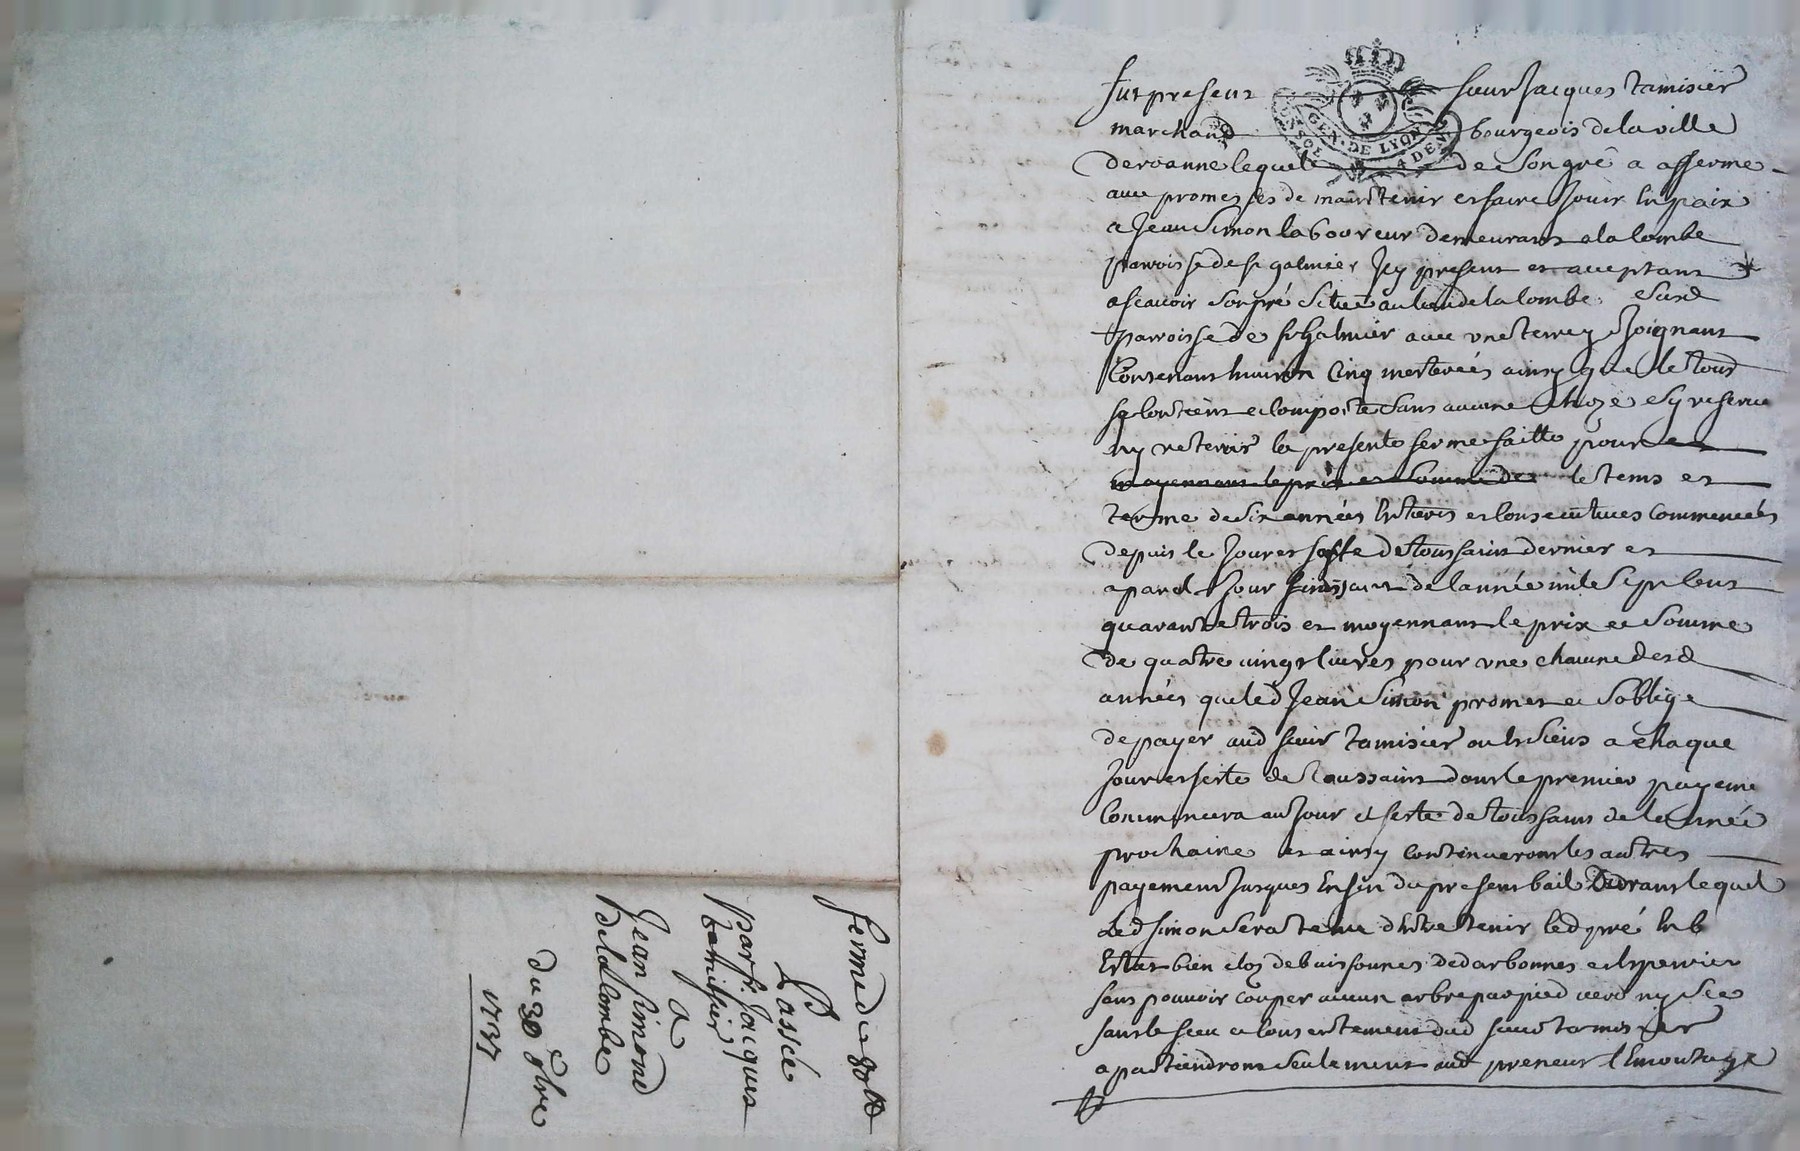 fut present sieur Jacques tamisier
marchand bourgeois de la ville
de roanne lequel de son gré a afferme
avec promesses de maintenir et faire Jouir En paix
a Jean Simon laboureur demeurant a la Combe
parroisse de st galmier Jcy present et acceptant
ascavoir son pré Situé au lieu de la Combe susd
parroisse de st galmier avec une terre y Joignant
Contenant Cinq mesterées ainsy que le tout
se Contient et Comporte sans aucune choze sy reserver
ny retenir la presente ferme faitte pour
moyennant le prix et Somme de le tems et
terme de Six années Entieres et Consecutives commencées
depuis le Jour et feste de toussaint dernier et
a pareil Jour finissant de l'année mile Sept Cent
quarante trois et moyennant le prix et Somme
de quatre vingt livres pour une chacune desd
années que led Jean Simon promet et Soblige
de payer aud sieur tamisier ou Es Siens a chaque
Jour et feste de Toussaint dont le premier payeme
Commencera au Jour et feste de toussaint de lannée
prochaine et ainsy Continueront les autres
payement Jusques En fin du present bail durant lequel
Led Simon Sera tenu dEntretenir led pré En b
Estat bien clos de buissonnes
sans pouvoir couper aucun arbre par pied verd ny Sec
sans le sceu et Consentement dud sieur tamisier
apartiendront Seulement aud preneur lEmontage
GEN. DE LYON
4 DEN
ferme de 80 lt
Passée
par sr. Jacques
Tamisier
A
Jean Simond
De la Combe
du 30 8bre
1737